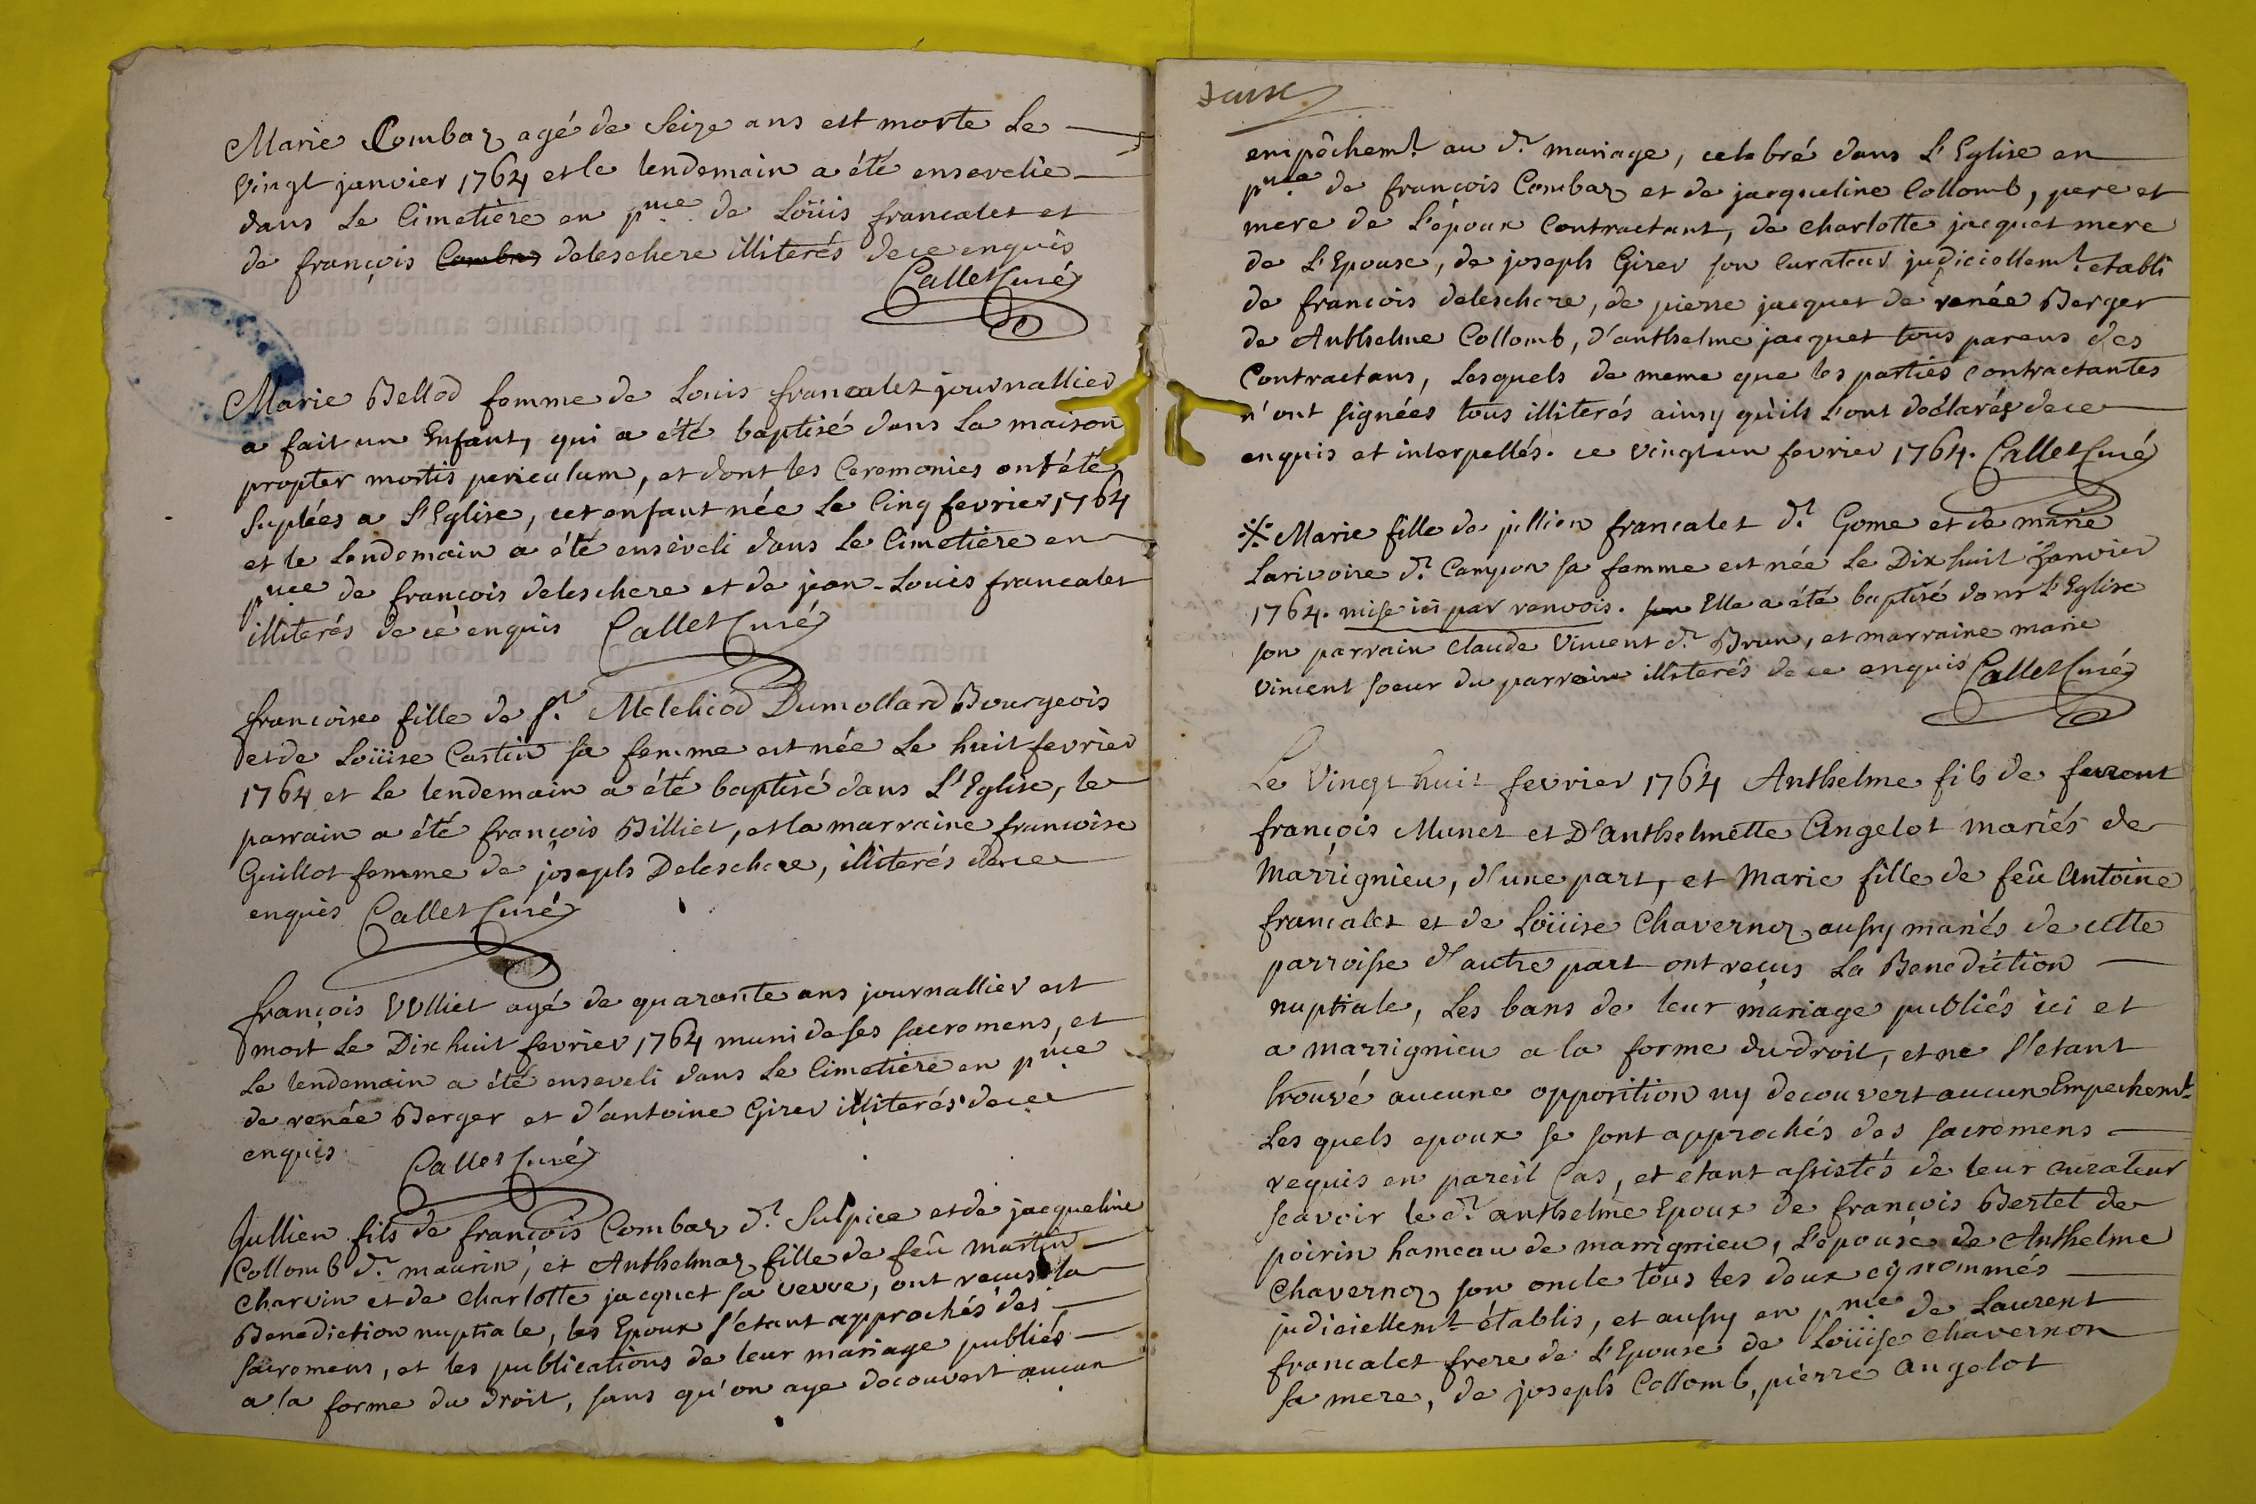 Marie Combaz agé de Seize ans est morte Le
Vingt janvier 1764 et le lendemain a été ensevelie
dans Le Cimetière en pnce de Loüis francalet et
de françois Combaz deleschere illiterés de ce enquis
Callet Curé
Marie Bellod femme de Louis francalet journallier
a fait un Enfant, qui a été baptisé dans La maison
propter mortis periculum, et dont les Ceremonies ont été
Suplées a L'Eglise, cet enfant née Le Cinq fevrier 1764
et le Lendemain a été enseveli dans Le Cimetière en
pnce de françois deleschere et de jean-Louis francalet
illiterés de ce enquis Callet Curé
francoise fille de Sr. Melchiod Dumollard Bourgeois
et de Loüise Castin sa femme est née Le huit fevrier
1764 et Le lendemain a été baptisé dans L'Eglise, le
parrain a été françois Billiet, et la marraine francoise
Guillot femme de joseph Deleschere, illiterés de ce
enquis Callet Curé
françois Vulliet agé de quarante ans journallier est
mort Le Dix huit fevrier 1764 muni de ses sacremens, et
Le lendemain a été enseveli dans Le Cimetière en pnce
de renée Berger et d'antoine Girer illiterés de ce
enquis Callet Curé
Jullien fils de françois Combaz dt. Sulpice et de jacqueline
Collomb dt. maurin, et Anthelmaz fille de feû martin
Charvin et de Charlotte jacquet sa veuve, ont recus la
Benediction nuptiale, les Epoux s'etant approchés des
sacremens, et les publications de leur mariage publiés
a la forme du droit, sans qu'on aye decouvert aucun
empêchemt. au dt. mariage, celebré dans L'Eglise en
pnce de francois Combaz et de jacqueline Collomb, pere et
mere de L'époux Contractant, de Charlotte jacquet mere
de L'Epouse, de joseph Girer son Curateur judiciellemt. etabli
de francois deleschere, de pierre jacquet de renée Berger
de Anthelme Collomb, d'anthelme jacquet tous parens des
Contractans, Lesquels de meme que les parties contractantes
n'ont signées tous illiterés ainsy qu'ils L'ont déclarés de ce
enquis et interpellés. ce vingt un fevrier 1764. Callet Curé
※ Marie fille de jullien francalet dt. Gome et de marie
Larivoire dt. Campon sa femme est née Le Dix huit Janvier
1764. mise ici par renvois. son Elle a été baptisé dans L'Eglise
son parrain Claude Vincent dt. Brun, et marraine marie
Vincent soeur du parrain illiterés de ce enquis Callet Curé
Le Vingt huit fevrier 1764 Anthelme fils de
françois Munet et D'anthelmette Angelot mariés de
Marrignieu, d'une part, et Marie fille de feû Antoine
francalet et de Loüise Chavernoz aussy mariés de cette
parroisse d'autre part ont reçus La Benediction
nuptiale, Les bans de leur mariage publiés ici et
a marrignieu a la forme du droit, et ne s'etant
trouvé aucune opposition ny decouvert aucun Empechemt.
Les quels epoux se sont approchés des sacremens
requis en pareil Cas, et etant assistés de leur curateur
scavoir le dt. anthelme Epoux de françois Bertet de
poirin hameau de marrignieu, L'epouse de Anthelme
Chavernoz son oncle tous les deux cy nommés
judiciellemt établis, et aussy en pnce de Laurent
francalet frere de L'Epouse de Loüise Chavernon
sa mere, de joseph Collomb, pierre angelot